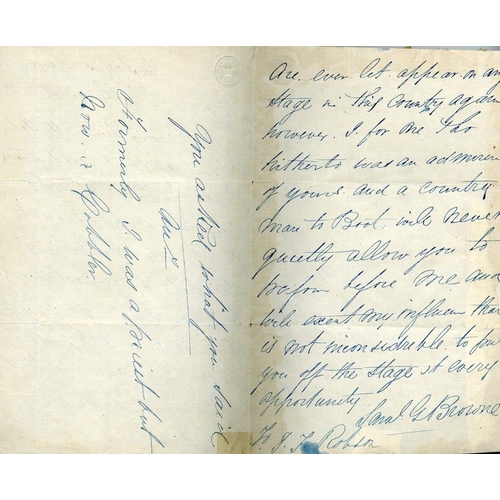 are ever let appear on any
Stage in this Country again
however. I for one tho
hitherto was an admirer
of yours and a country
man to Boot, will never
quietly allow you to
perform before me and
will exert my influen that
is not inconsidrable to
you off the Stage at every
opportunity
Saml. G Browne
To J. F Robson
You asked what you said
Formerly I was a priest but
Now. a Cobbler.